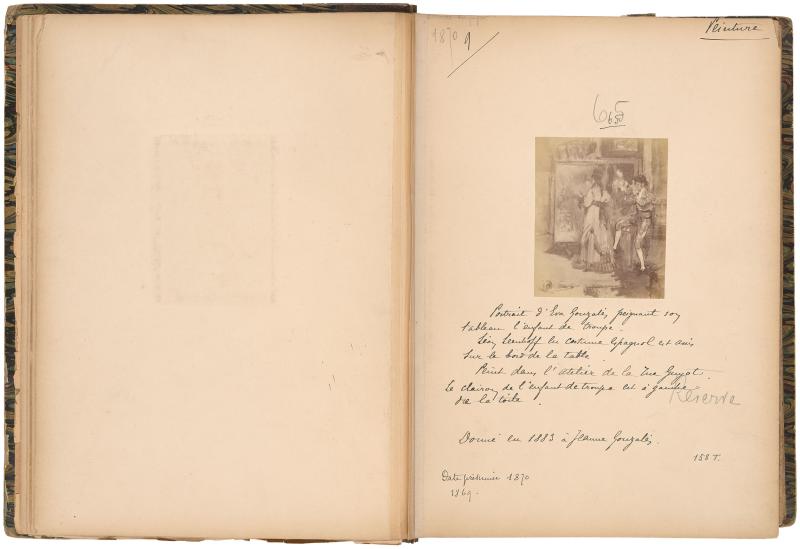 1870 9
Peinture
65
650
Portrait d'Eva Gonzalès, peignant son
tableau l'enfant de troupe.
Léon Leenhoff en costume Espagnol est assis
sur le bord de la table
Peint dans l'atelier de la rue Guyot.
le clairon de l'enfant de troupe est à gauche
de la toile.
Réserve
Donné en 1883 à Jeanne Gonzalès.
158 T.
Date 1870
1869.